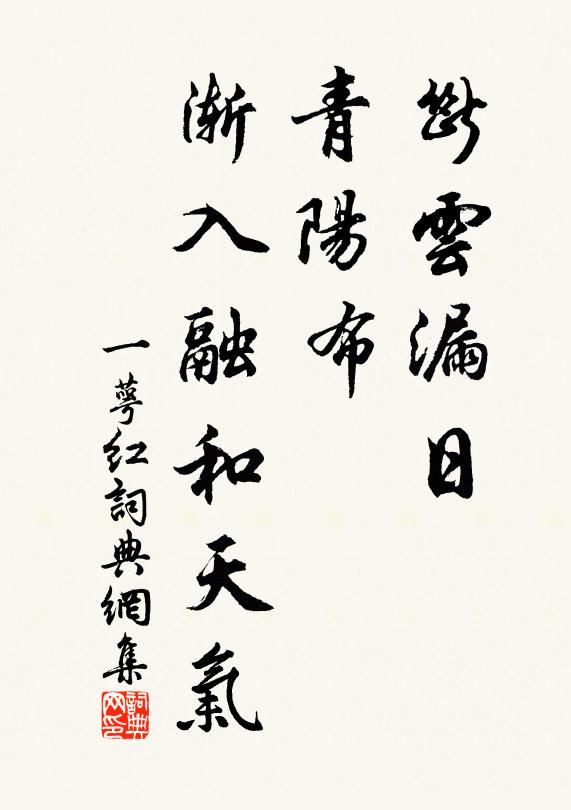 斷雲漏日
青陽布
漸入融和天氣
一萼紅詞典網集
詞典网印